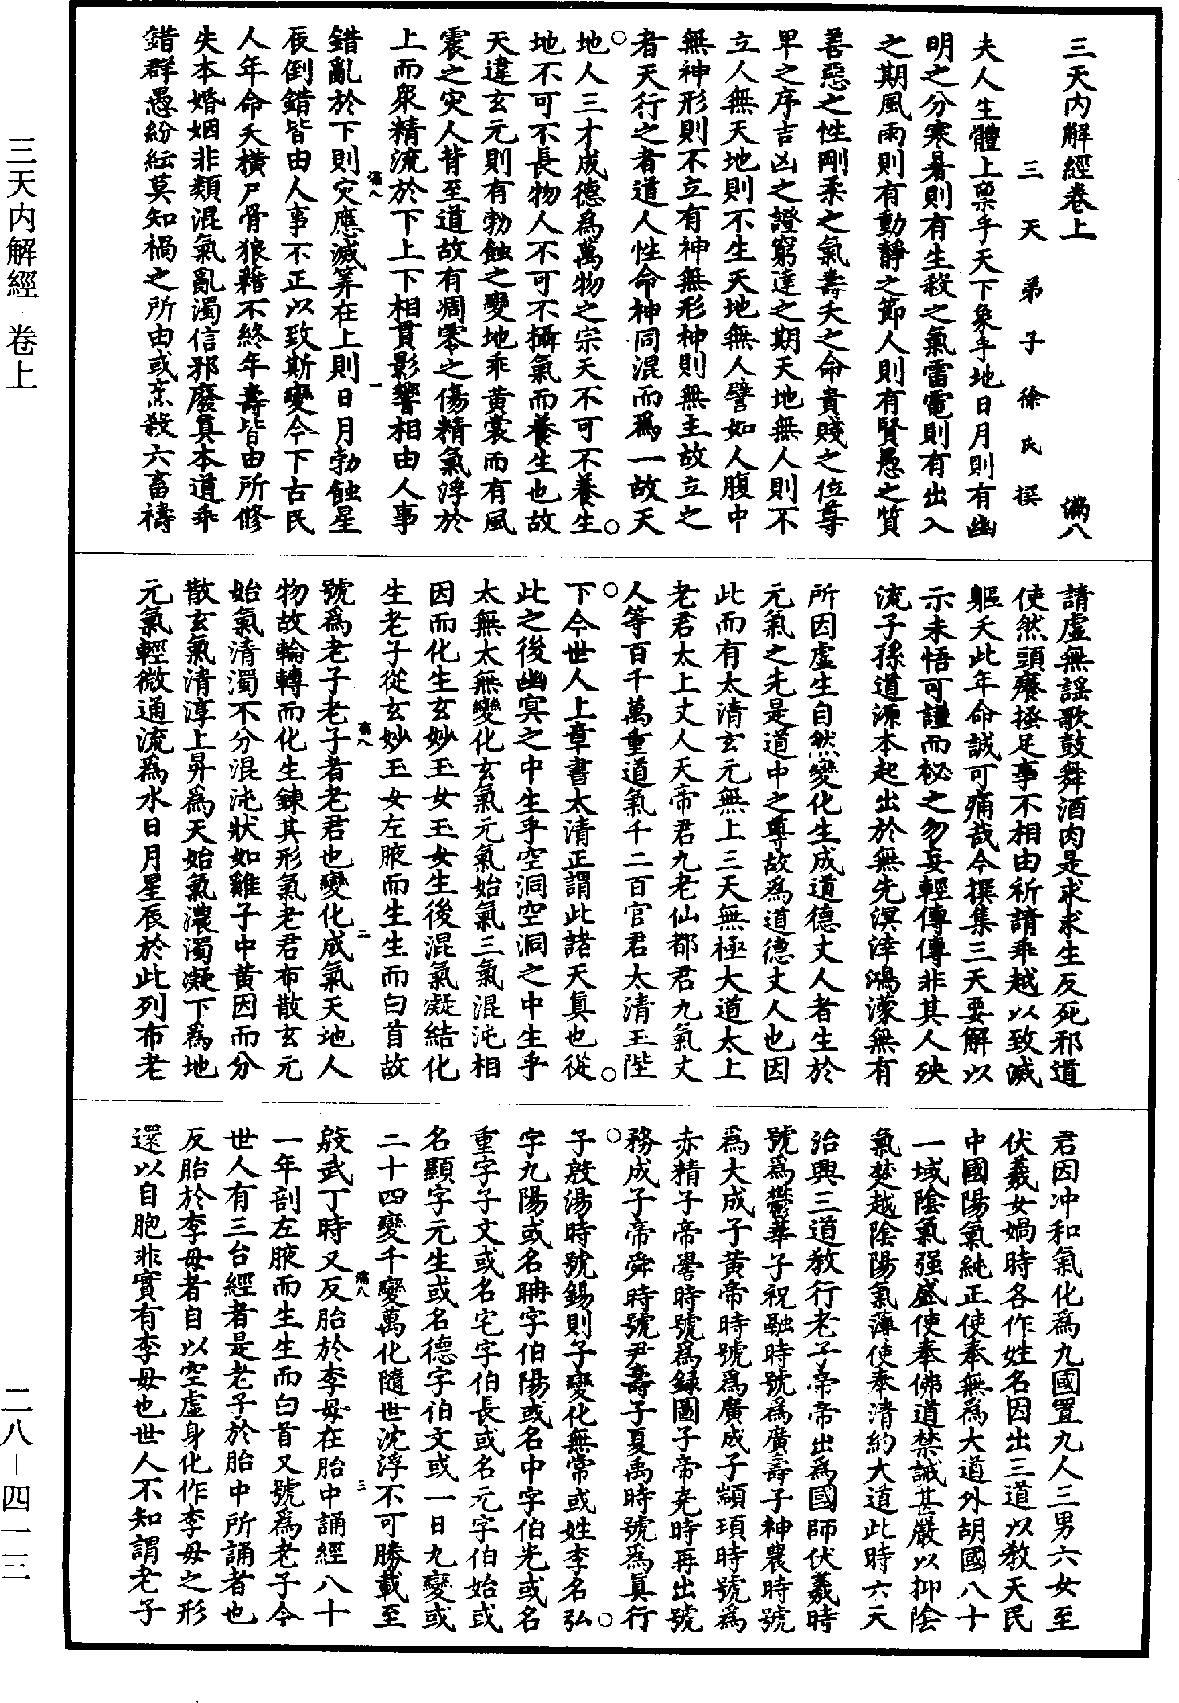 三天內解經卷上　滿八
三天弟子徐氏撰
夫人生體上稟乎天下象乎地日月則有幽
明之分寒暑則有生殺之氣雷電則有出入
之期風雨則有動靜之節人則有賢愚之質
善惡之性剛柔之氣壽夭之命貴賤之位尊
卑之序吉凶之證窮達之期天地無人則不
立人無天地則不生天地無人譬如人腹中
無神形則不立有神無形神則無主故立之
者天行之者道人性命神同混而爲一故天
地人三才成德爲萬物之宗天不可不養生
地不可不長物人不可不攝氣而養生也故
天違玄元則有勃蝕之變地乖黃裳而有風
震之灾人背至道故有凋零之傷精氣浮於
上而衆精流於下上下相貫影響相由人事
滿八　一
錯亂於下則灾應滅筭在上則日月勃蝕星
辰倒錯皆由人事不正以致斯變今下古民
人年命夭橫尸骨狼藉不終年壽皆由所修
失本婚姻非類混氣亂濁信邪廢真本道乖
錯群愚紛紜莫知禍之所由或烹殺六畜禱
請虛無謡歌鼓舞酒肉是求求生反死邪道
使然頭癢搔足事不相由祈請乖越以致滅
軀夭此年命誠可痛哉今撰集三天要解以
示未悟可謹而袐之勿妄輕傳傳非其人殃
流子孫道源本起出於無先溟涬鴻濛無有
所因虛生自然變化生成道德丈人者生於
元氣之先是道中之尊故爲道德丈人也因
此而有太清玄元無上三天無極大道太上
老君太上丈人天帝君九老仙都君九氣丈
人等百千萬重道氣千二百官君太清玉陛
下今世人上章書太清正謂此諸天真也從
此之後幽冥之中生乎空洞空洞之中生乎
太無太無變化玄氣元氣始氣三氣混沌相
因而化生玄妙玉女玉女生後混氣凝結化
生老子從玄妙玉女左腋而生生而白首故
滿八　二
號爲老子老子者老君也變化成氣天地人
物故輪轉而化生鍊其形氣老君布散玄元
始氣清濁不分混沌狀如雞子中黃因而分
散玄氣清淳上昇爲天始氣濃濁凝下爲地
元氣輕微通流爲水日月星辰於此列布老
君因冲和氣化爲九國置九人三男六女至
伏羲女媧時各作姓名因出三道以教天民
中國陽氣純正使奉無爲大道外胡國八十
一域陰氣强盛使奉佛道禁誡甚嚴以抑陰
氣楚越陰陽氣薄使奉清約大道此時六天
治興三道教行老子帝帝出爲國師伏羲時
號爲鬱華子祝融時號爲廣壽子神農時號
爲大成子黃帝時號爲廣成子顓頊時號爲
赤精子帝嚳時號爲録圖子帝堯時再出號
務成子帝舜時號尹壽子夏禹時號爲真行
子殷湯時號錫則子變化無常或姓李名弘
字九陽或名聃字伯陽或名中字伯光或名
重字子文或名宅字伯長或名元字伯始或
名顯字元生或名德字伯文或一日九變或
二十四變千變萬化隨世沈浮不可勝載至
滿八　三
殷武丁時又反胎於李母在胎中誦經八十
一年剖左腋而生生而白首又號爲老子今
世人有三台經者是老子於胎中所誦者也
反胎於李母者自以空虛身化作李母之形
還以自胞非實有李母也世人不知謂老子
三天內解經　卷上
二八—四一三